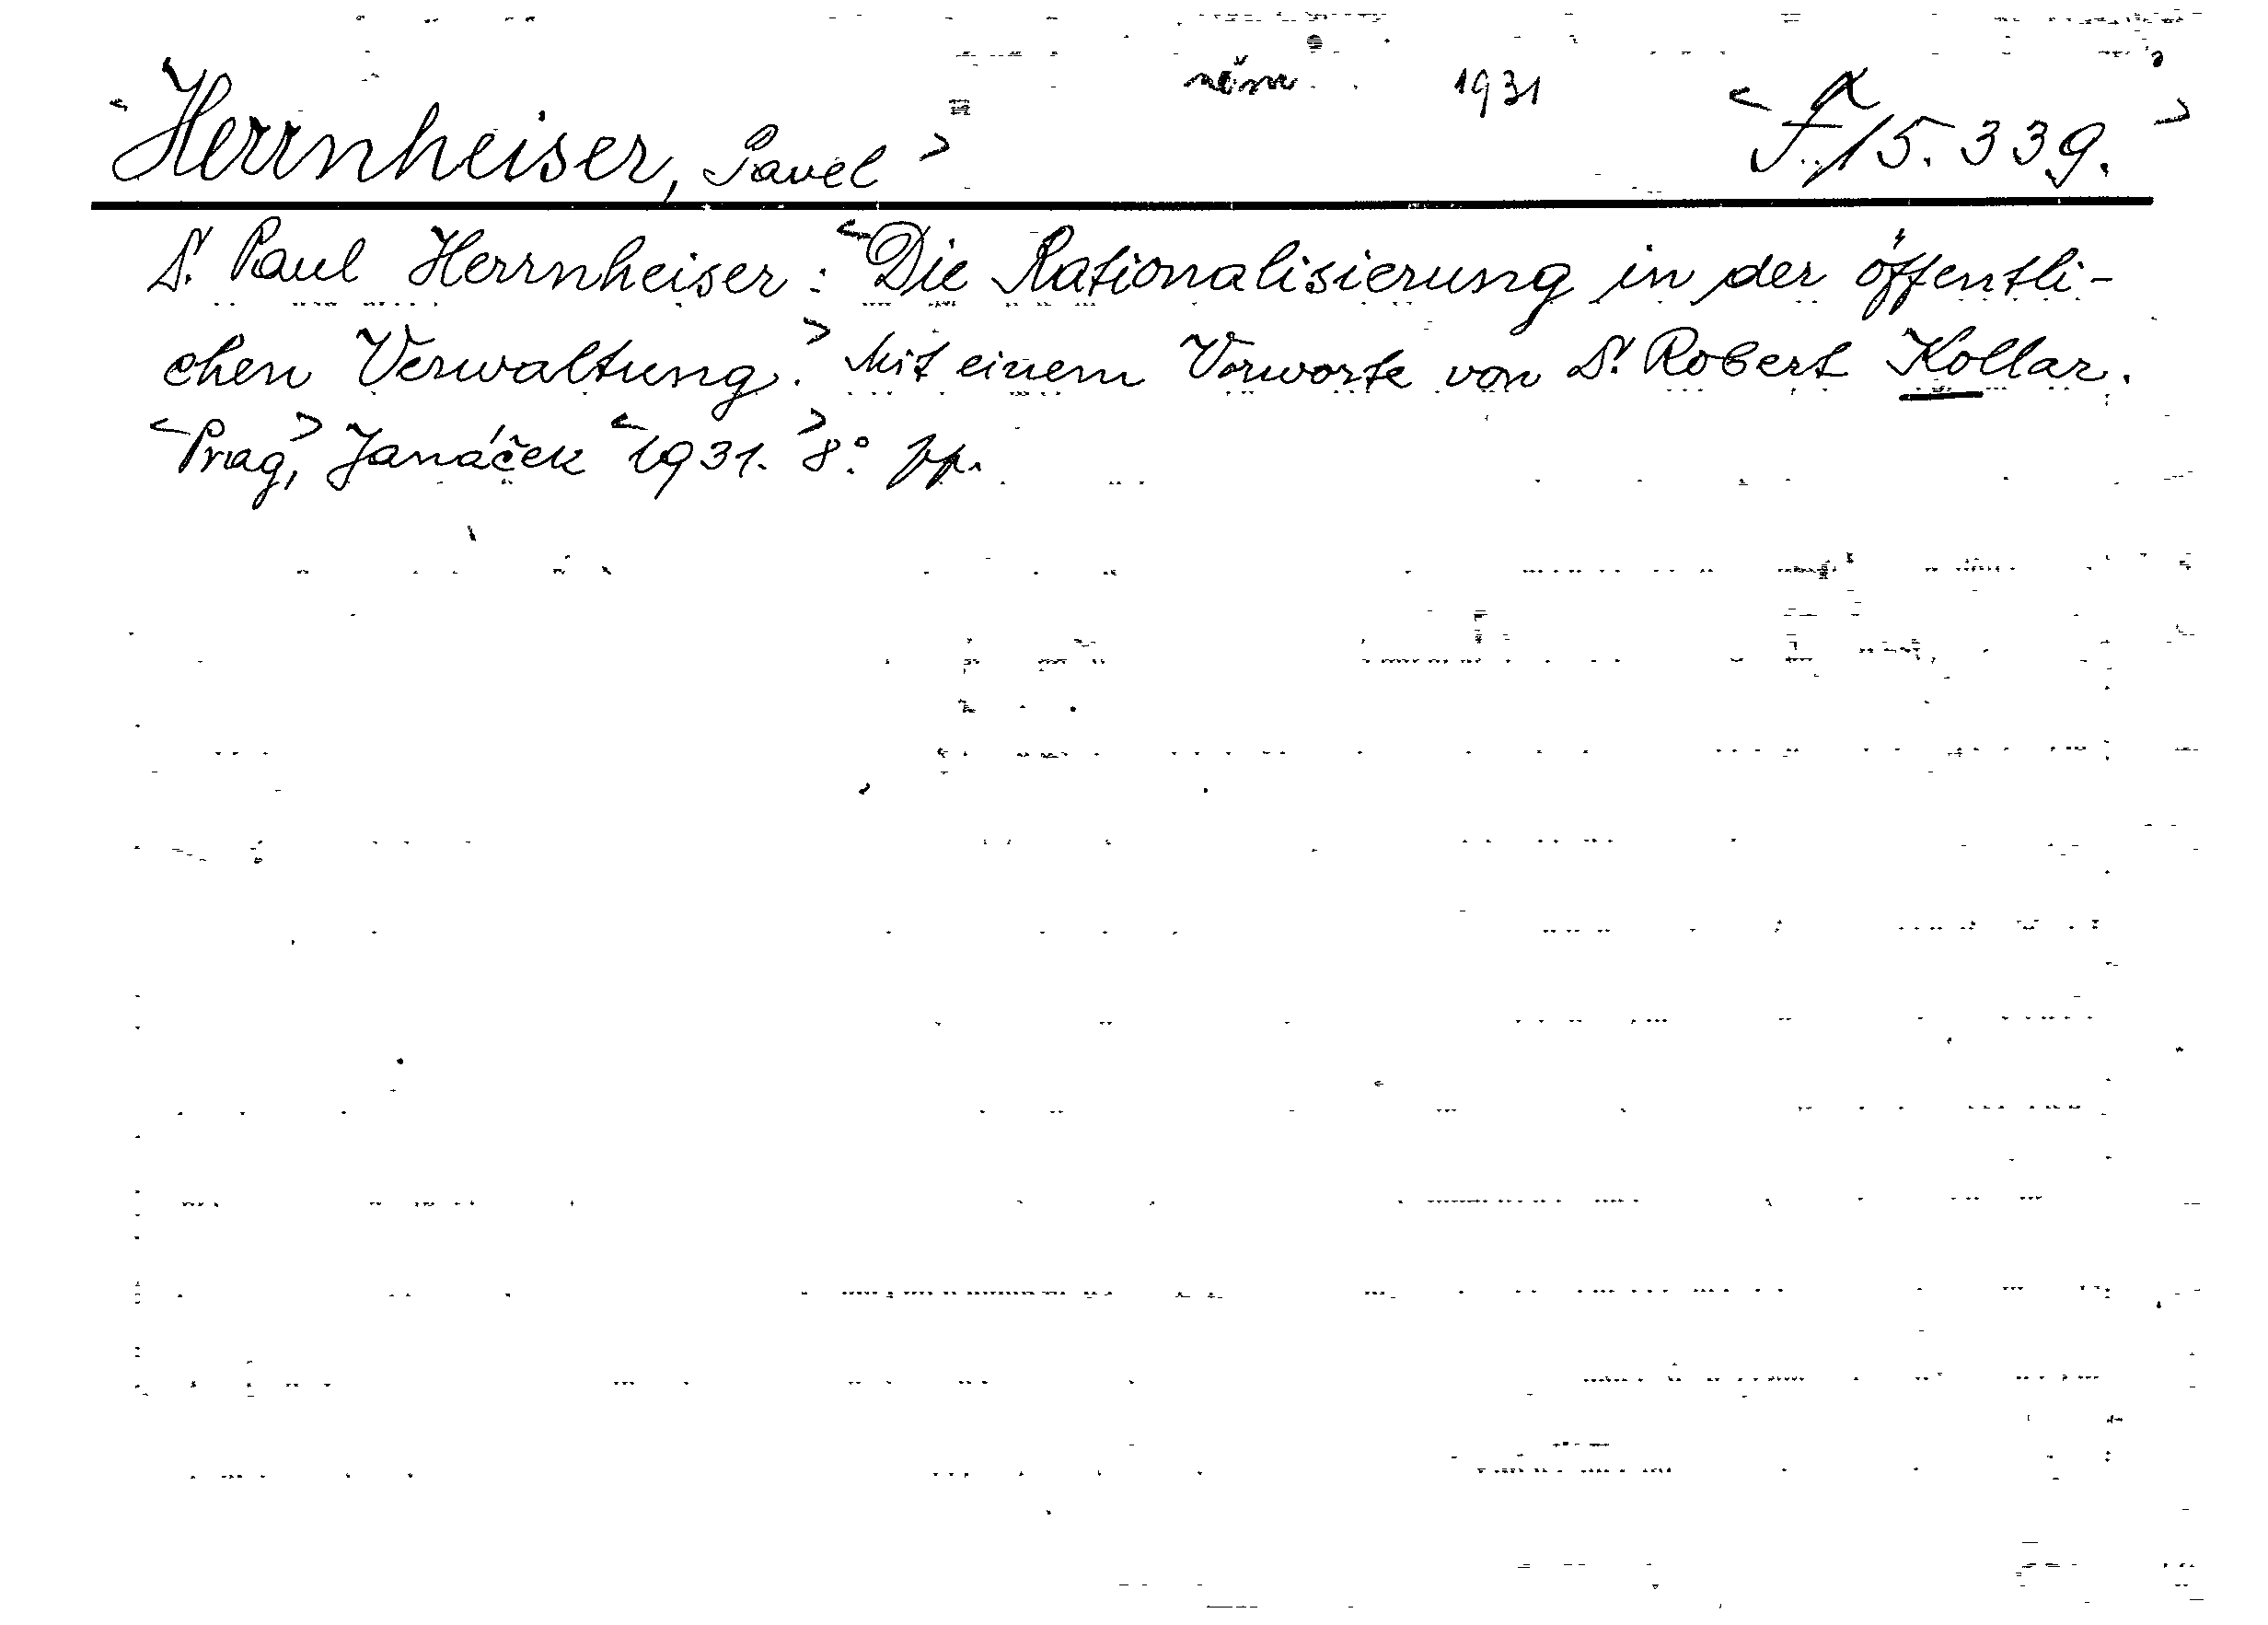 něm. 1931
<Herrnheiser, Pavel> <F/15.339.>
Dr. Paul Herrnheiser: <Die Rationalisierung in der öffentli-
chen Verwaltung.> Mit einem Vorworte von Dr. Robert Kollar.
<Prag,> Janáček <1931.> 8°. pp.